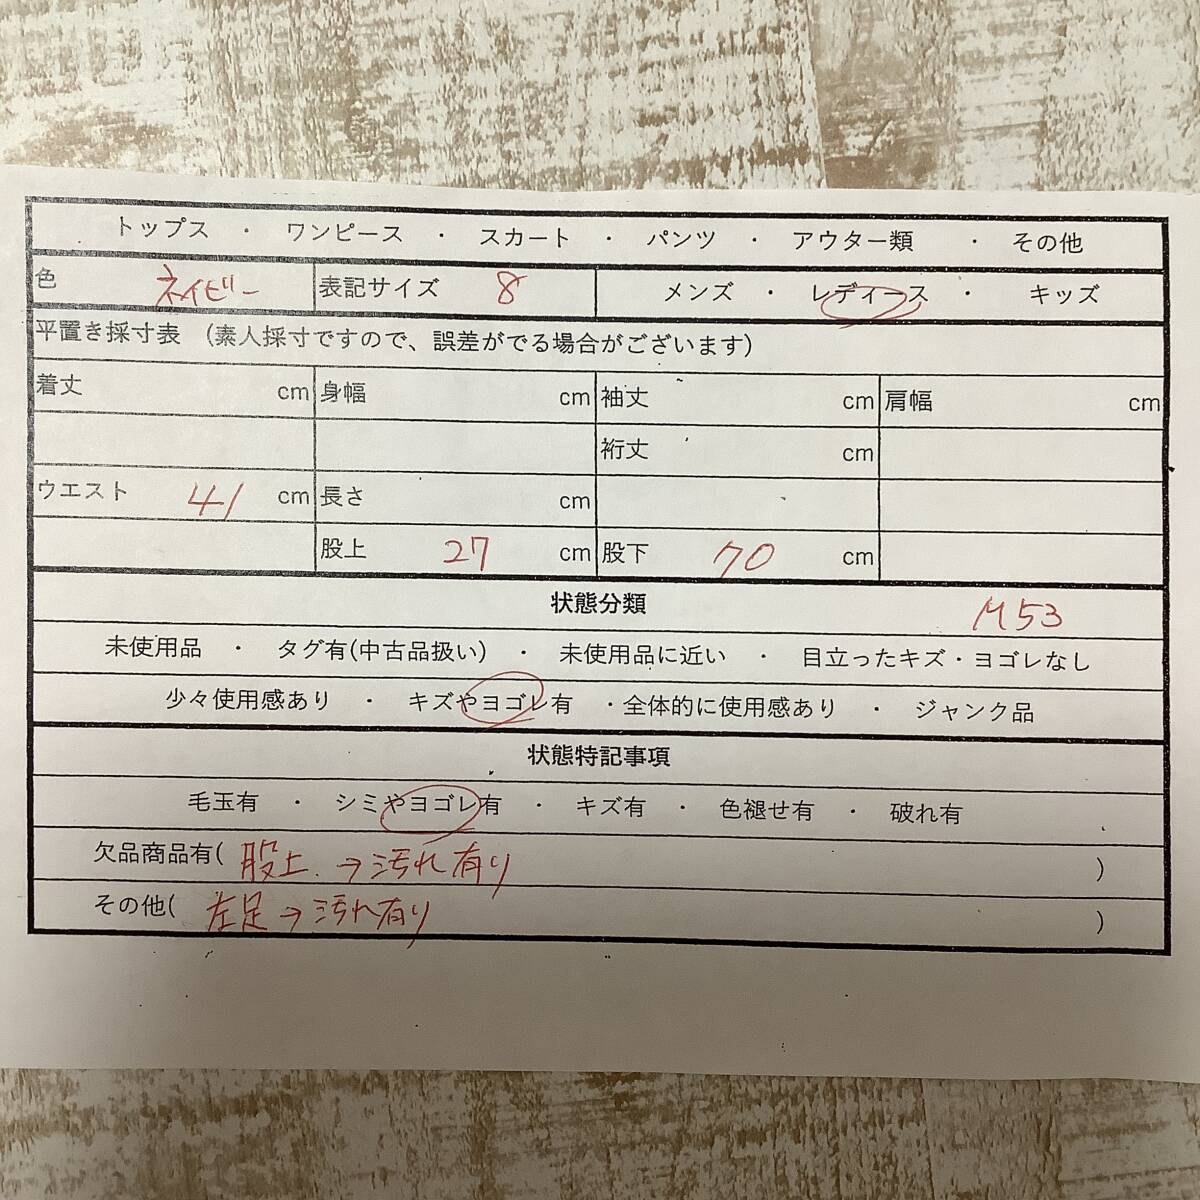 トップス ・ ワンピース ・ スカート ・ パンツ ・ アウター類 ・ その他
色 ネイビー 表記サイズ 8 メンズ ・ レディース ・ キッズ
平置き採寸表 (素人採寸ですので、誤差がでる場合がございます)
着丈 cm 身幅 cm 袖丈 cm 肩幅 cm
裄丈 cm
ウエスト 41 cm 長さ cm
股上 27 cm 股下 70 cm
状態分類 M53
未使用品 ・ タグ有(中古品扱い) ・ 未使用品に近い ・ 目立ったキズ・ヨゴレなし
少々使用感あり ・ キズやヨゴレ有 ・全体的に使用感あり ・ ジャンク品
状態特記事項
毛玉有 ・ シミやヨゴレ有 ・ キズ有 ・ 色褪せ有 ・ 破れ有
欠品商品有( 股上.→汚れ有り )
その他( 左足→汚れ有り )